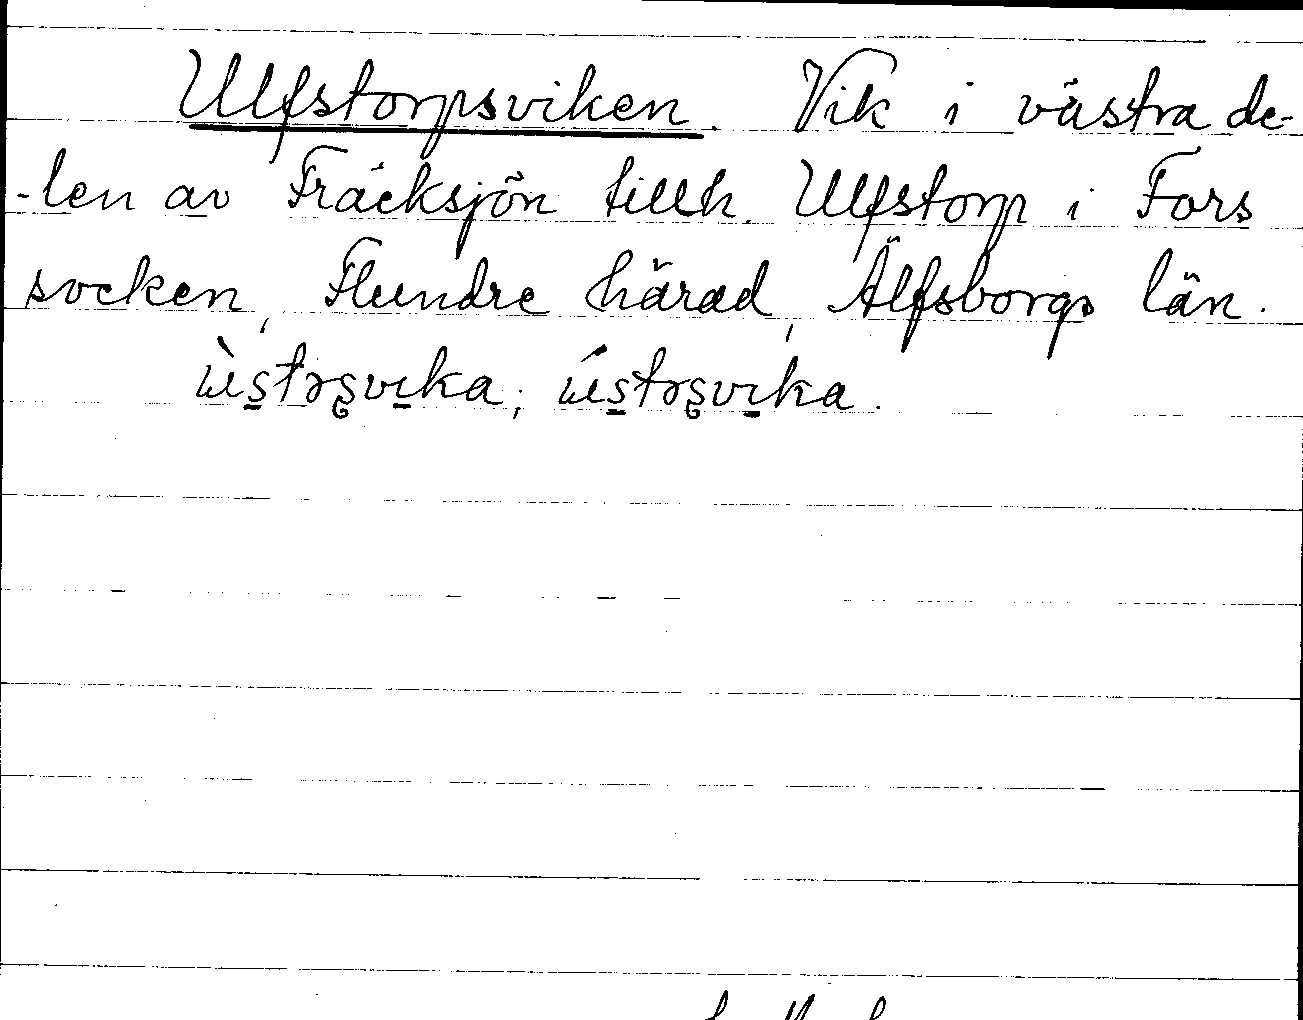 Ulfstorpsviken. Vik i västra de-
-len av Fräcksjön tillh. Ulfstorp i Fors
socken, Flundre härad, Älfsborgs län.